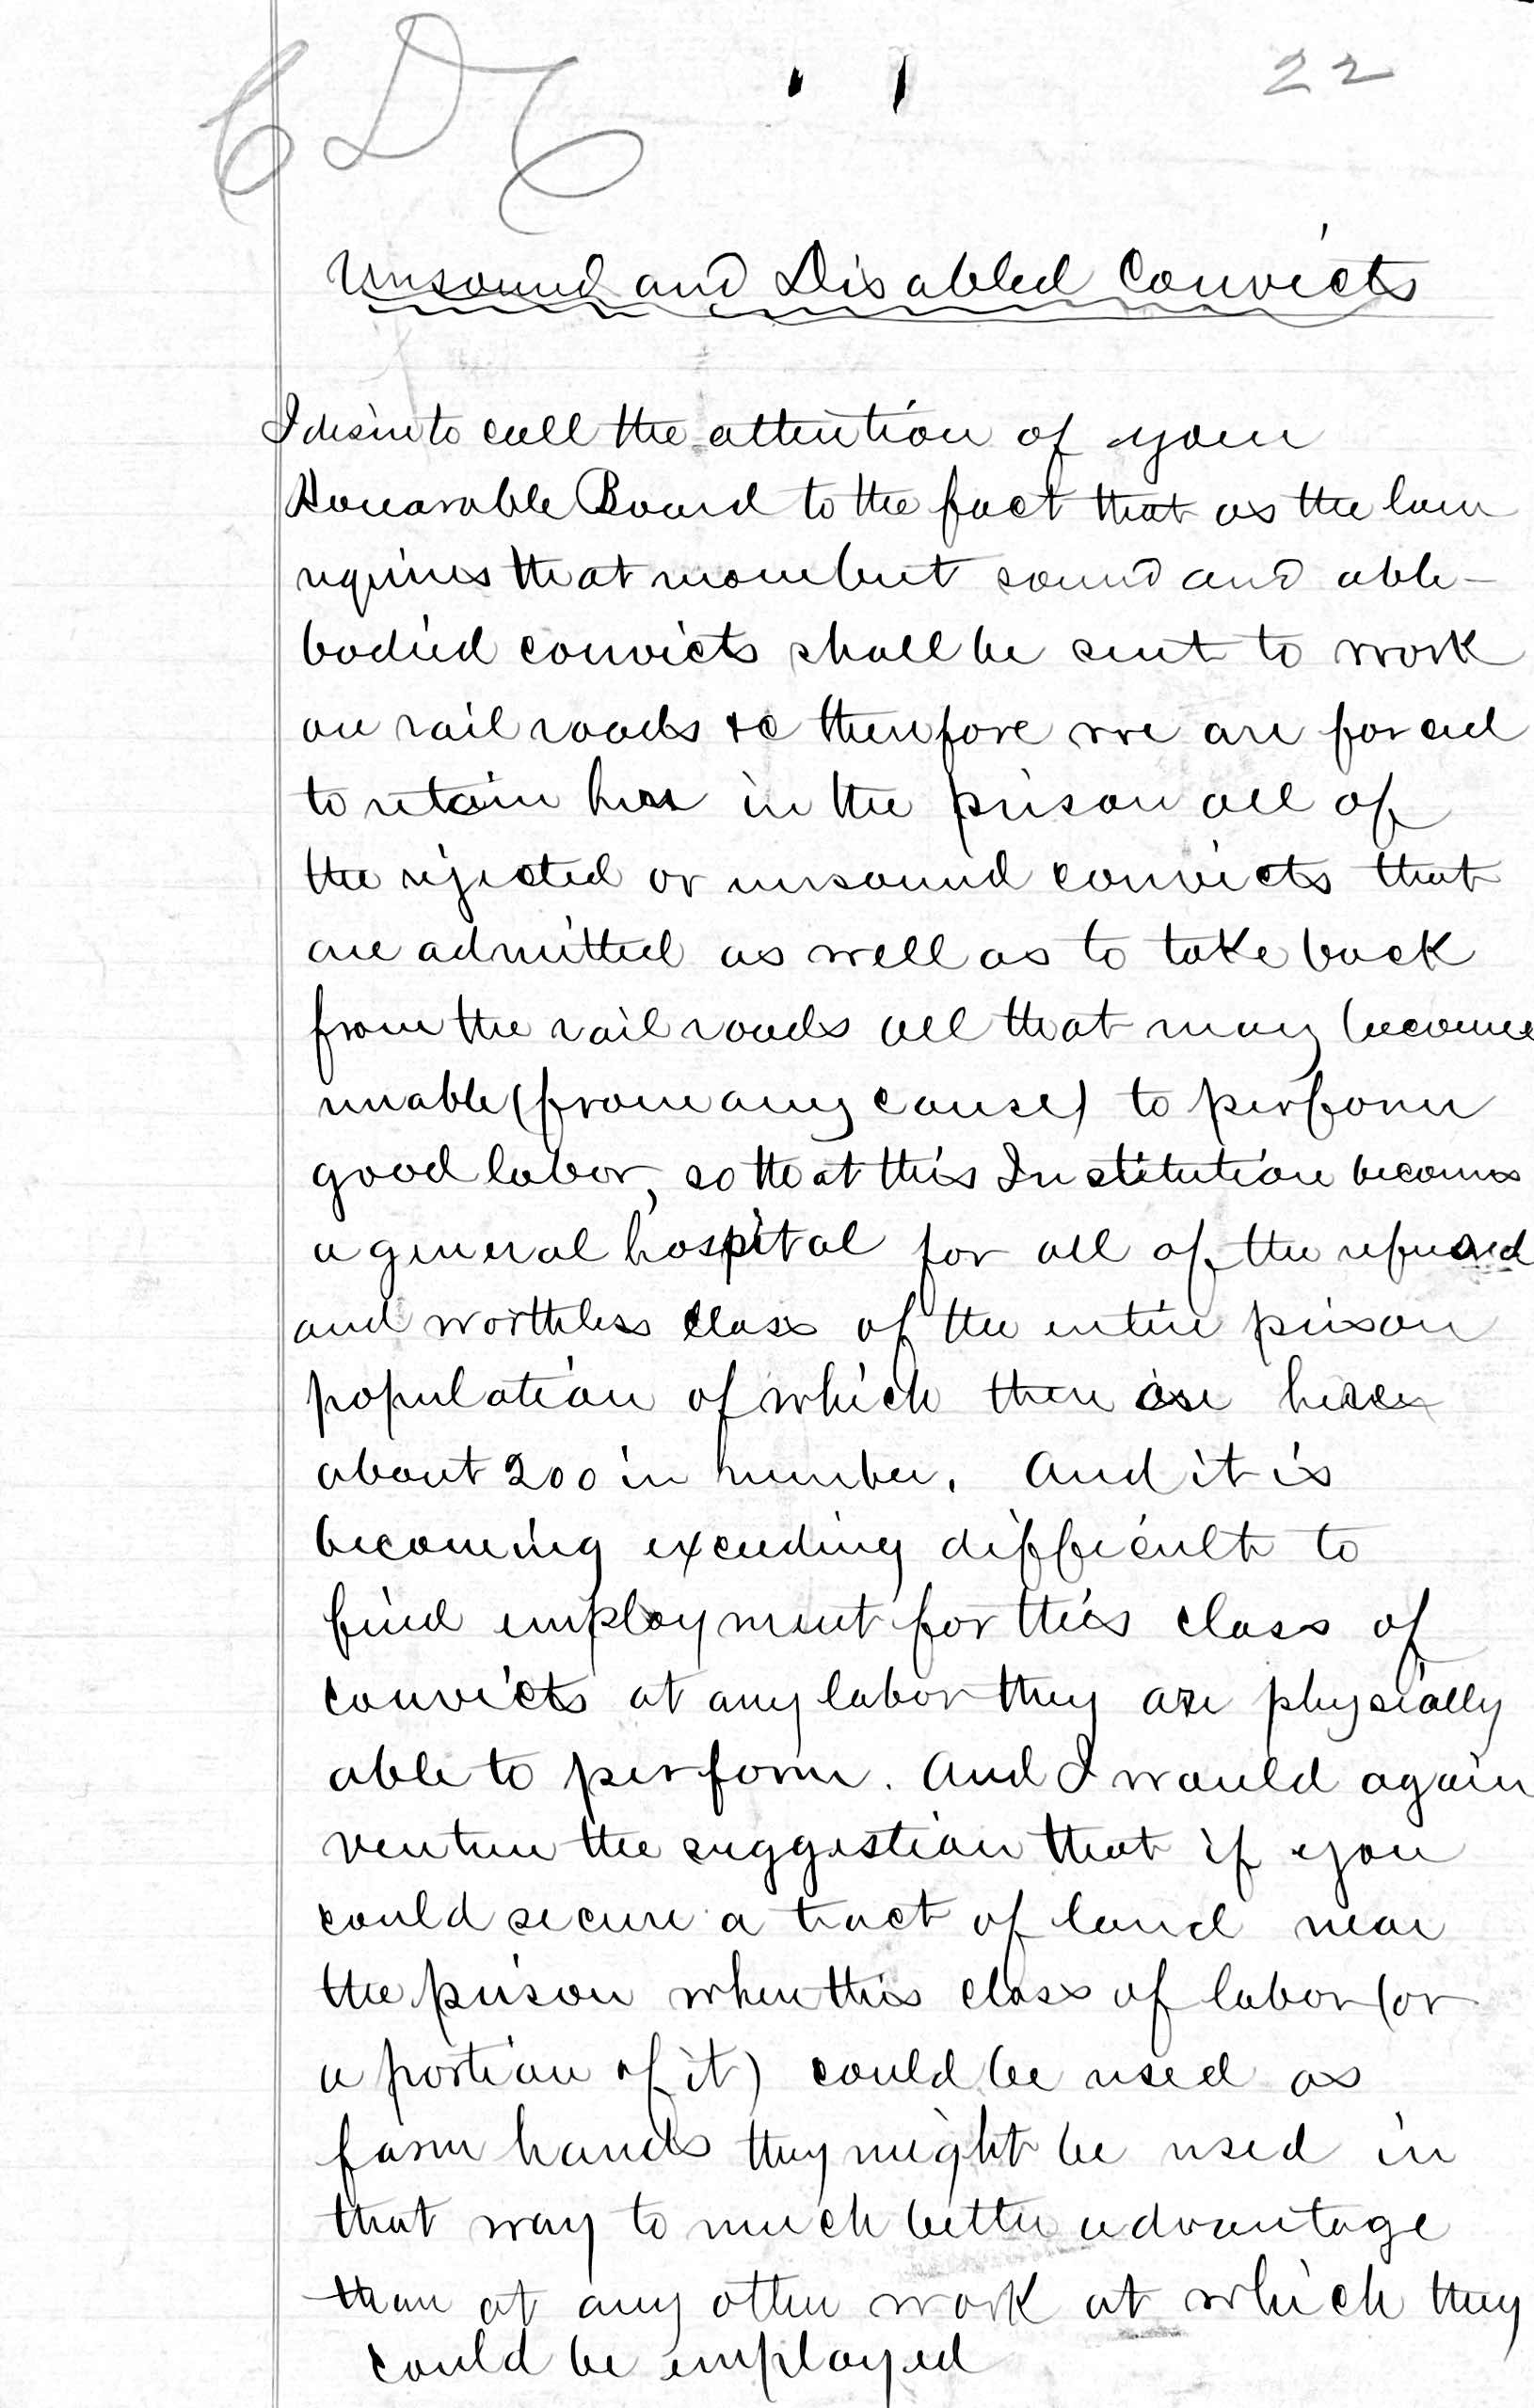 22
Unsound and Disabled Convicts
I desire to call the attention of your
Honorable Board to the fact that as the law
requires that none but sound and able-
bodied convicts shall be sent to work
on rail roads &c therefore we are forced
to retain here in the prison all of
the rejected or unsound convicts that
are admitted as well as to take back
from the rail roads all that may become
unable (from any cause) to perform
good labor, so that this Institution becomes
a general hospital for all of the refused
and worthless class of the entire prison
population of which there are here
about 200 in number. And it is
becoming exceeding difficult to
find employment for this class of
convicts at any labor they are physially
able to perform. And I would again
venture the suggestion that if you
could secure a tract of land near
the prison where this class of labor (or
a portion of it) could be used as
farm hands they might be used in
that way to much better advantage
than at any other work at which they
could be employed